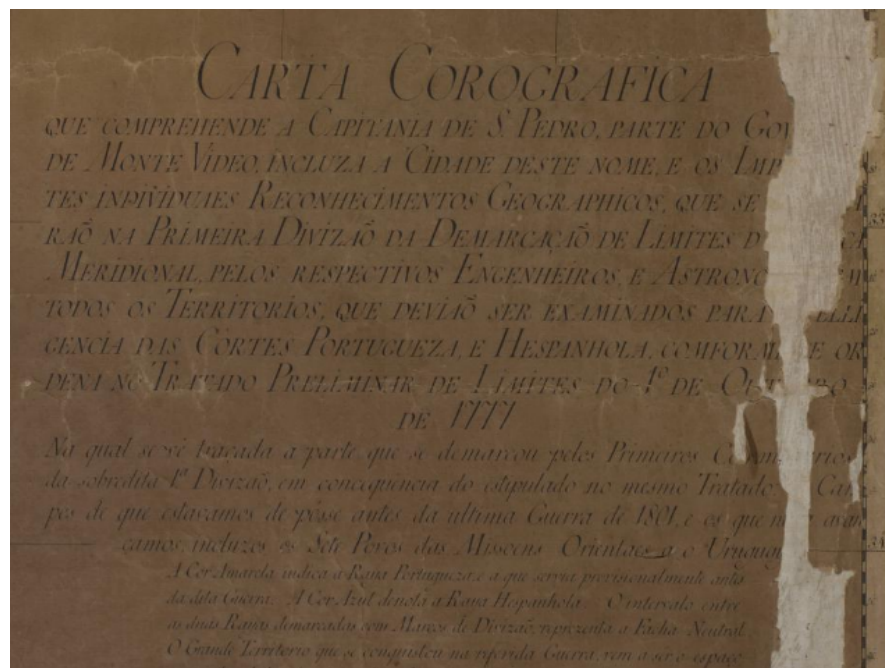 CARTA COROGRAFICA
QUE COMPREHENDE A CAPITANIA DE S. PEDRO, PARTE DO GOV
DE MONTE VIDEO, INCLUZA A CIDADE DESTE NOME, E OS IMP
TES INDIVIDUAES RECONHECIMENTOS GEOGRAPHICOS, QUE SE
RAÕ NA PRIMEIRA DIVIZAÕ DA DEMARCAÇAÕ DE LIMITES D
MERIDIONAL, PELOS RESPECTIVOS ENGENHEIROS, E ASTRONO
TODOS OS TERRITORIOS, QUE DEVIAÕ SER EXAMINADOS PARA ELLI
GENCIA DAS CORTES PORTUGUEZA, E HESPANHOLA, COMFORME OR
DENA NO TRATADO PRELIMINAR DE LIMITES DO 1º DE OUTUBRO
DE 1777
Na qual se vê traçada a parte que se demarcou pelos Primeiros Com rios
da sobredita 1ª Divizaõ, em concequencia do estipulado no mesmo Tratado, Cam
pos de que estavamos de pósse antes da ultima Guerra de 1801, e os que n avan
çamos, incluzos os Séte Povos das Missoens Orientaes a o Uruguay
A Cor Amarela indica a Raya Portugueza, e a que servia provisionalmente antes
da dita Guerra. A Cor Azul denota a Raya Hespanhola. O intervalo entre
as duas Rayas demarcadas com Marcos de Divizaõ, reprezenta a Facha Neutral
O Grande Territorio que se conquistou na referida Guerra, vem a ser o espaço